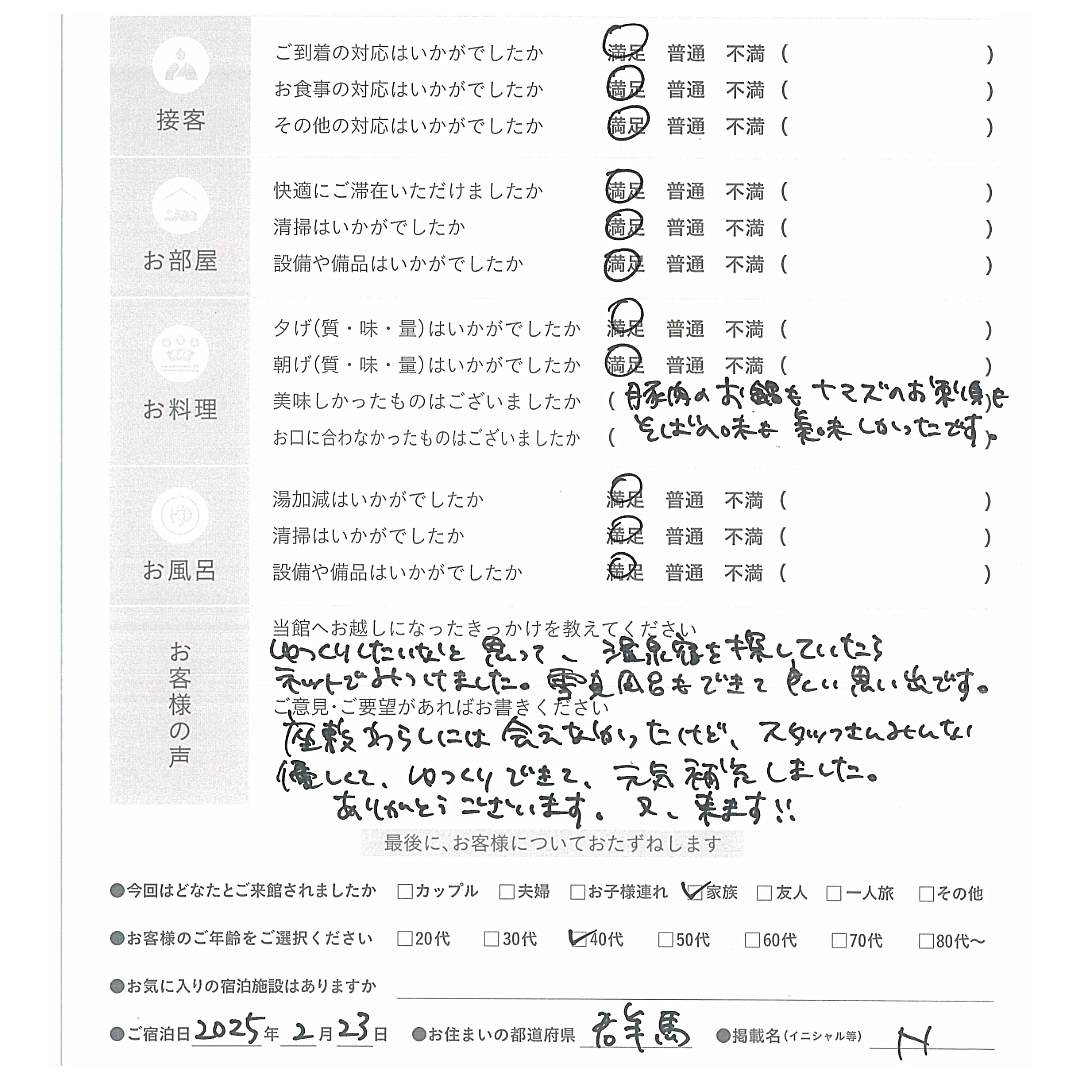 接客
ご到着の対応はいかがでしたか 満足 普通 不満 ( )
お食事の対応はいかがでしたか 満足 普通 不満 ( )
その他の対応はいかがでしたか 満足 普通 不満 ( )
お部屋
快適にご滞在いただけましたか 満足 普通 不満 ( )
清掃はいかがでしたか 満足 普通 不満 ( )
設備や備品はいかがでしたか 満足 普通 不満 ( )
お料理
夕げ(質・味・量)はいかがでしたか 満足 普通 不満 ( )
朝げ(質・味・量)はいかがでしたか 満足 普通 不満 ( )
美味しかったものはございましたか ( 豚肉のお鍋も ナマズのお刺身も )
お口に合わなかったものはございましたか ( そばの味も 美味しかったです。 )
お風呂
湯加減はいかがでしたか 満足 普通 不満 ( )
清掃はいかがでしたか 満足 普通 不満 ( )
設備や備品はいかがでしたか 満足 普通 不満 ( )
お客様の声
当館へお越しになったきっかけを教えてください
ゆっくりしたいなと思って、温泉宿を探していたら
ネットでみつけました。雪見風呂もできて良い思い出です。
ご意見・ご要望があればお書きください
座敷わらしには会えなかったけど、スタッフさんみんな
優しくて、ゆっくりできて、元気補充しました。
ありがとうございます。又、来ます!!
最後に、お客様についておたずねします
●今回はどなたとご来館されましたか □カップル □夫婦 □お子様連れ ☑家族 □友人 □一人旅 □その他
●お客様のご年齢をご選択ください □20代 □30代 ☑40代 □50代 □60代 □70代 □80代〜
●お気に入りの宿泊施設はありますか
●ご宿泊日 2025年 2月 23日 ●お住まいの都道府県 群馬 ●掲載名(イニシャル等) N